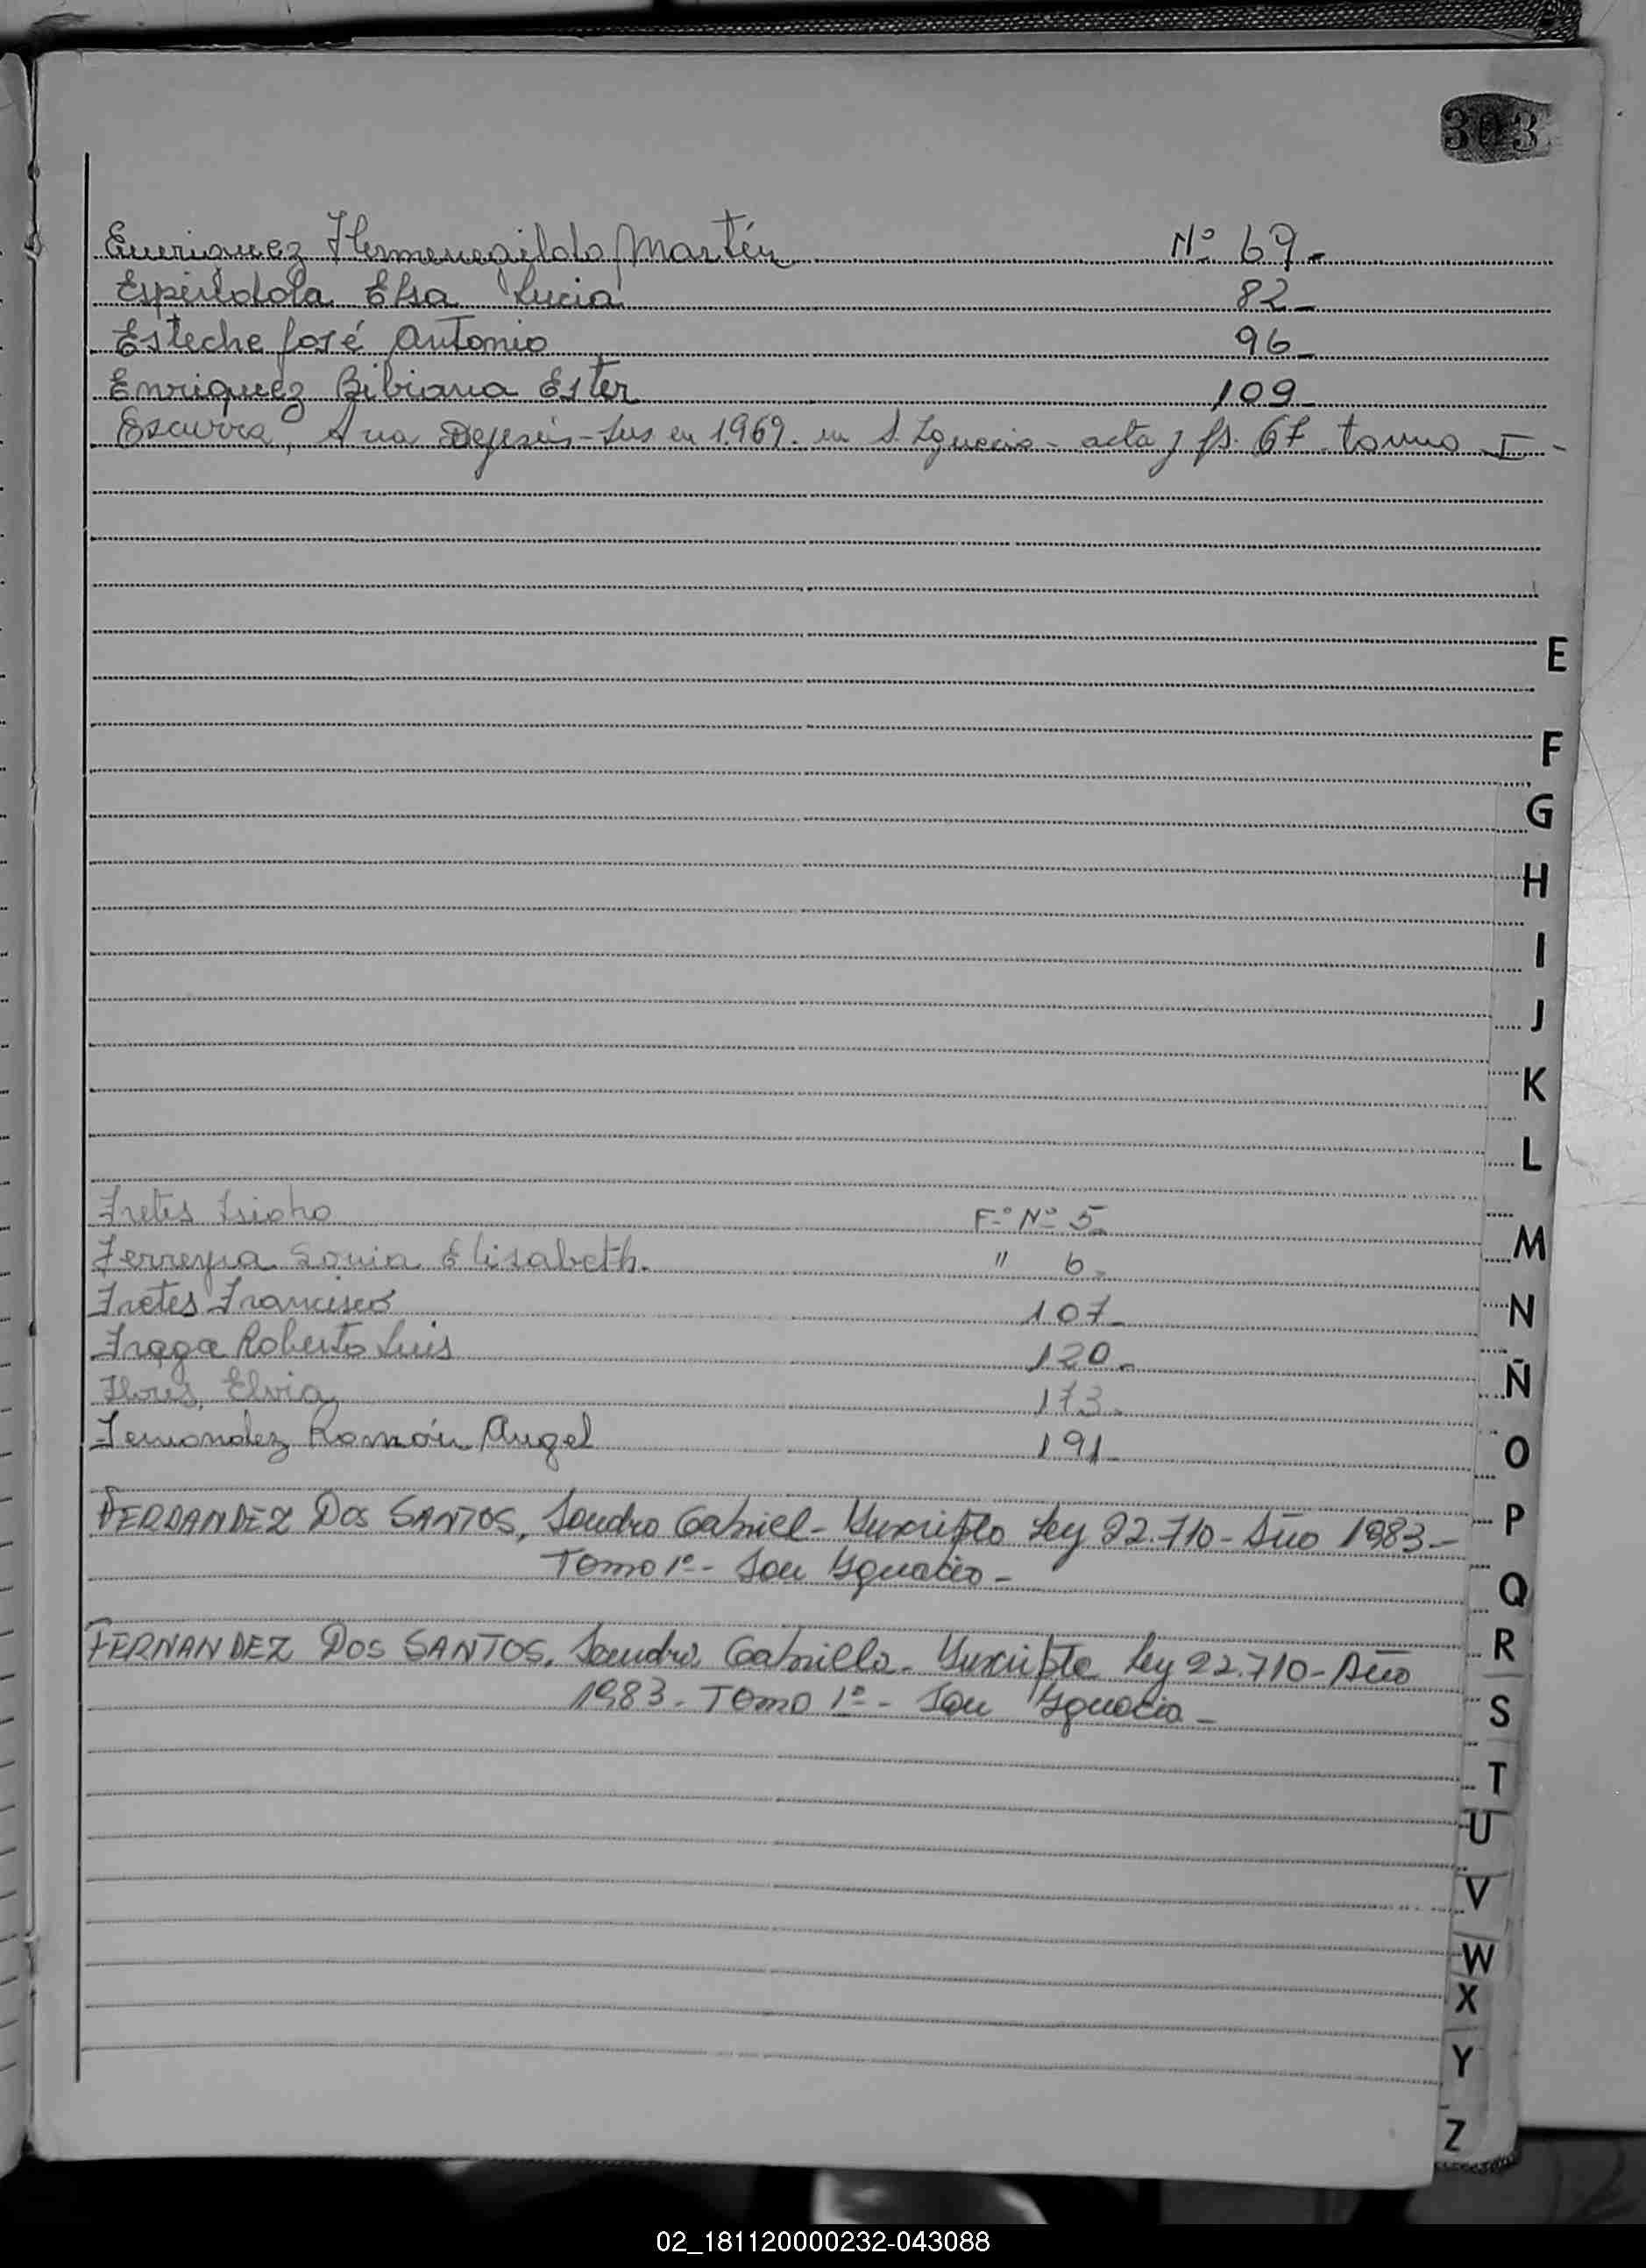 303
Enriquez Hermenegildo Martín Nº 69-
Espíndola Elsa Lucia 82-
Esteche José Antonio 96-
Enriquez Bibiana Ester 109-
Escurra, Ana Dejesús - Ins en 1.969. en S. Ignacio - acta y fs. 67 - tomo I -
E
F
G
H
I
J
K
L
Fretes Isidro Fº Nº 5-
Ferreyra Sonia Elisabeth. " 6-
M
Fretes Francisco 107-
N
Fraga Roberto Luis 120-
Ñ
Flores, Elvia 173-
Fernandez Ramón Angel 191-
O
FERNANDEZ DOS SANTOS, Sandro Gabriel - Inscripto Ley 22.710 - Año 1983-
P
Tomo 1º - San Ignacio -
Q
FERNANDEZ DOS SANTOS, Sandra Gabriella - Inscripta Ley 22.710 - Año
R
1983 - Tomo 1º - San Ignacio -
S
T
U
V
W
X
Y
Z
02_181120000232-043088